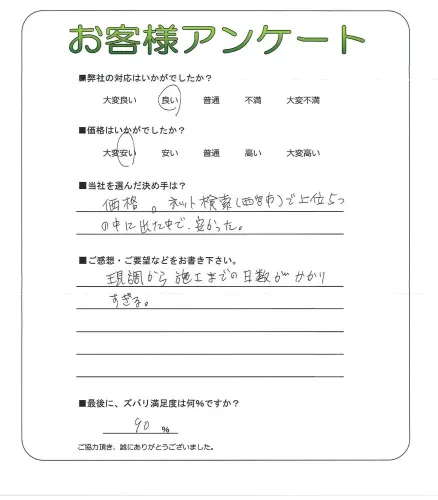 お客様アンケート
■弊社の対応はいかがでしたか？
大変良い 良い 普通 不満 大変不満
■価格はいかがでしたか？
大変安い 安い 普通 高い 大変高い
■当社を選んだ決め手は？
価格。ネット検索(西宮市)で上位5つ
の中に出た中で、安かった。
■ご感想・ご要望などをお書き下さい。
現調から施工までの日数がかかり
すぎる。
■最後に、ズバリ満足度は何%ですか？
90 %
ご協力頂き、誠にありがとうございました。